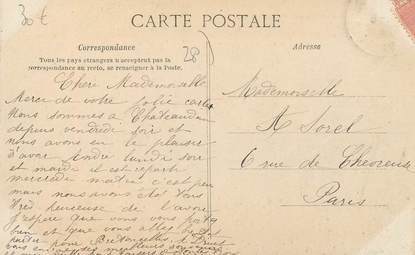 30 €
CARTE POSTALE
28
Correspondance
Tous les pays étrangers n'acceptent pas la
correspondance au recto, se renseigner à la Poste.
Chère Mademoiselle
Merci de votre jolie carte
Nous sommes à Chateaudun
depuis vendredi soir et
nous avons eu le plaisir
d'avoir André lundi soir
et mardi il est reparti
mercredi matin c'est peu
mais nous avons été tous
heureuse de l'avoir
J'espère que vous vous portez
bien et que vous allez
partir pour
Adresse
Mademoiselle
Sorel
6 rue de Chevreuse
Paris